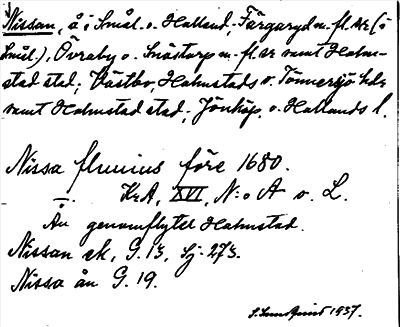 Nissan, å i Smål. o. Halland, Färgaryd m. fl. snr (i
Smål.), Övraby o. Snöstorp m. fl. snr samt Halm-
stad stad; Västbo, Halmstads o. Tönnersjö hdr
samt Halmstad stad; Jönköp. o. Hallands l.
Nissa fluvius före 1680.
KrA, XVI, N:o A o. L.
Ån genomflytel Halmstad.
Nissan ek, G. 13, Sj. 273.
Nissa ån G. 19.
1937.